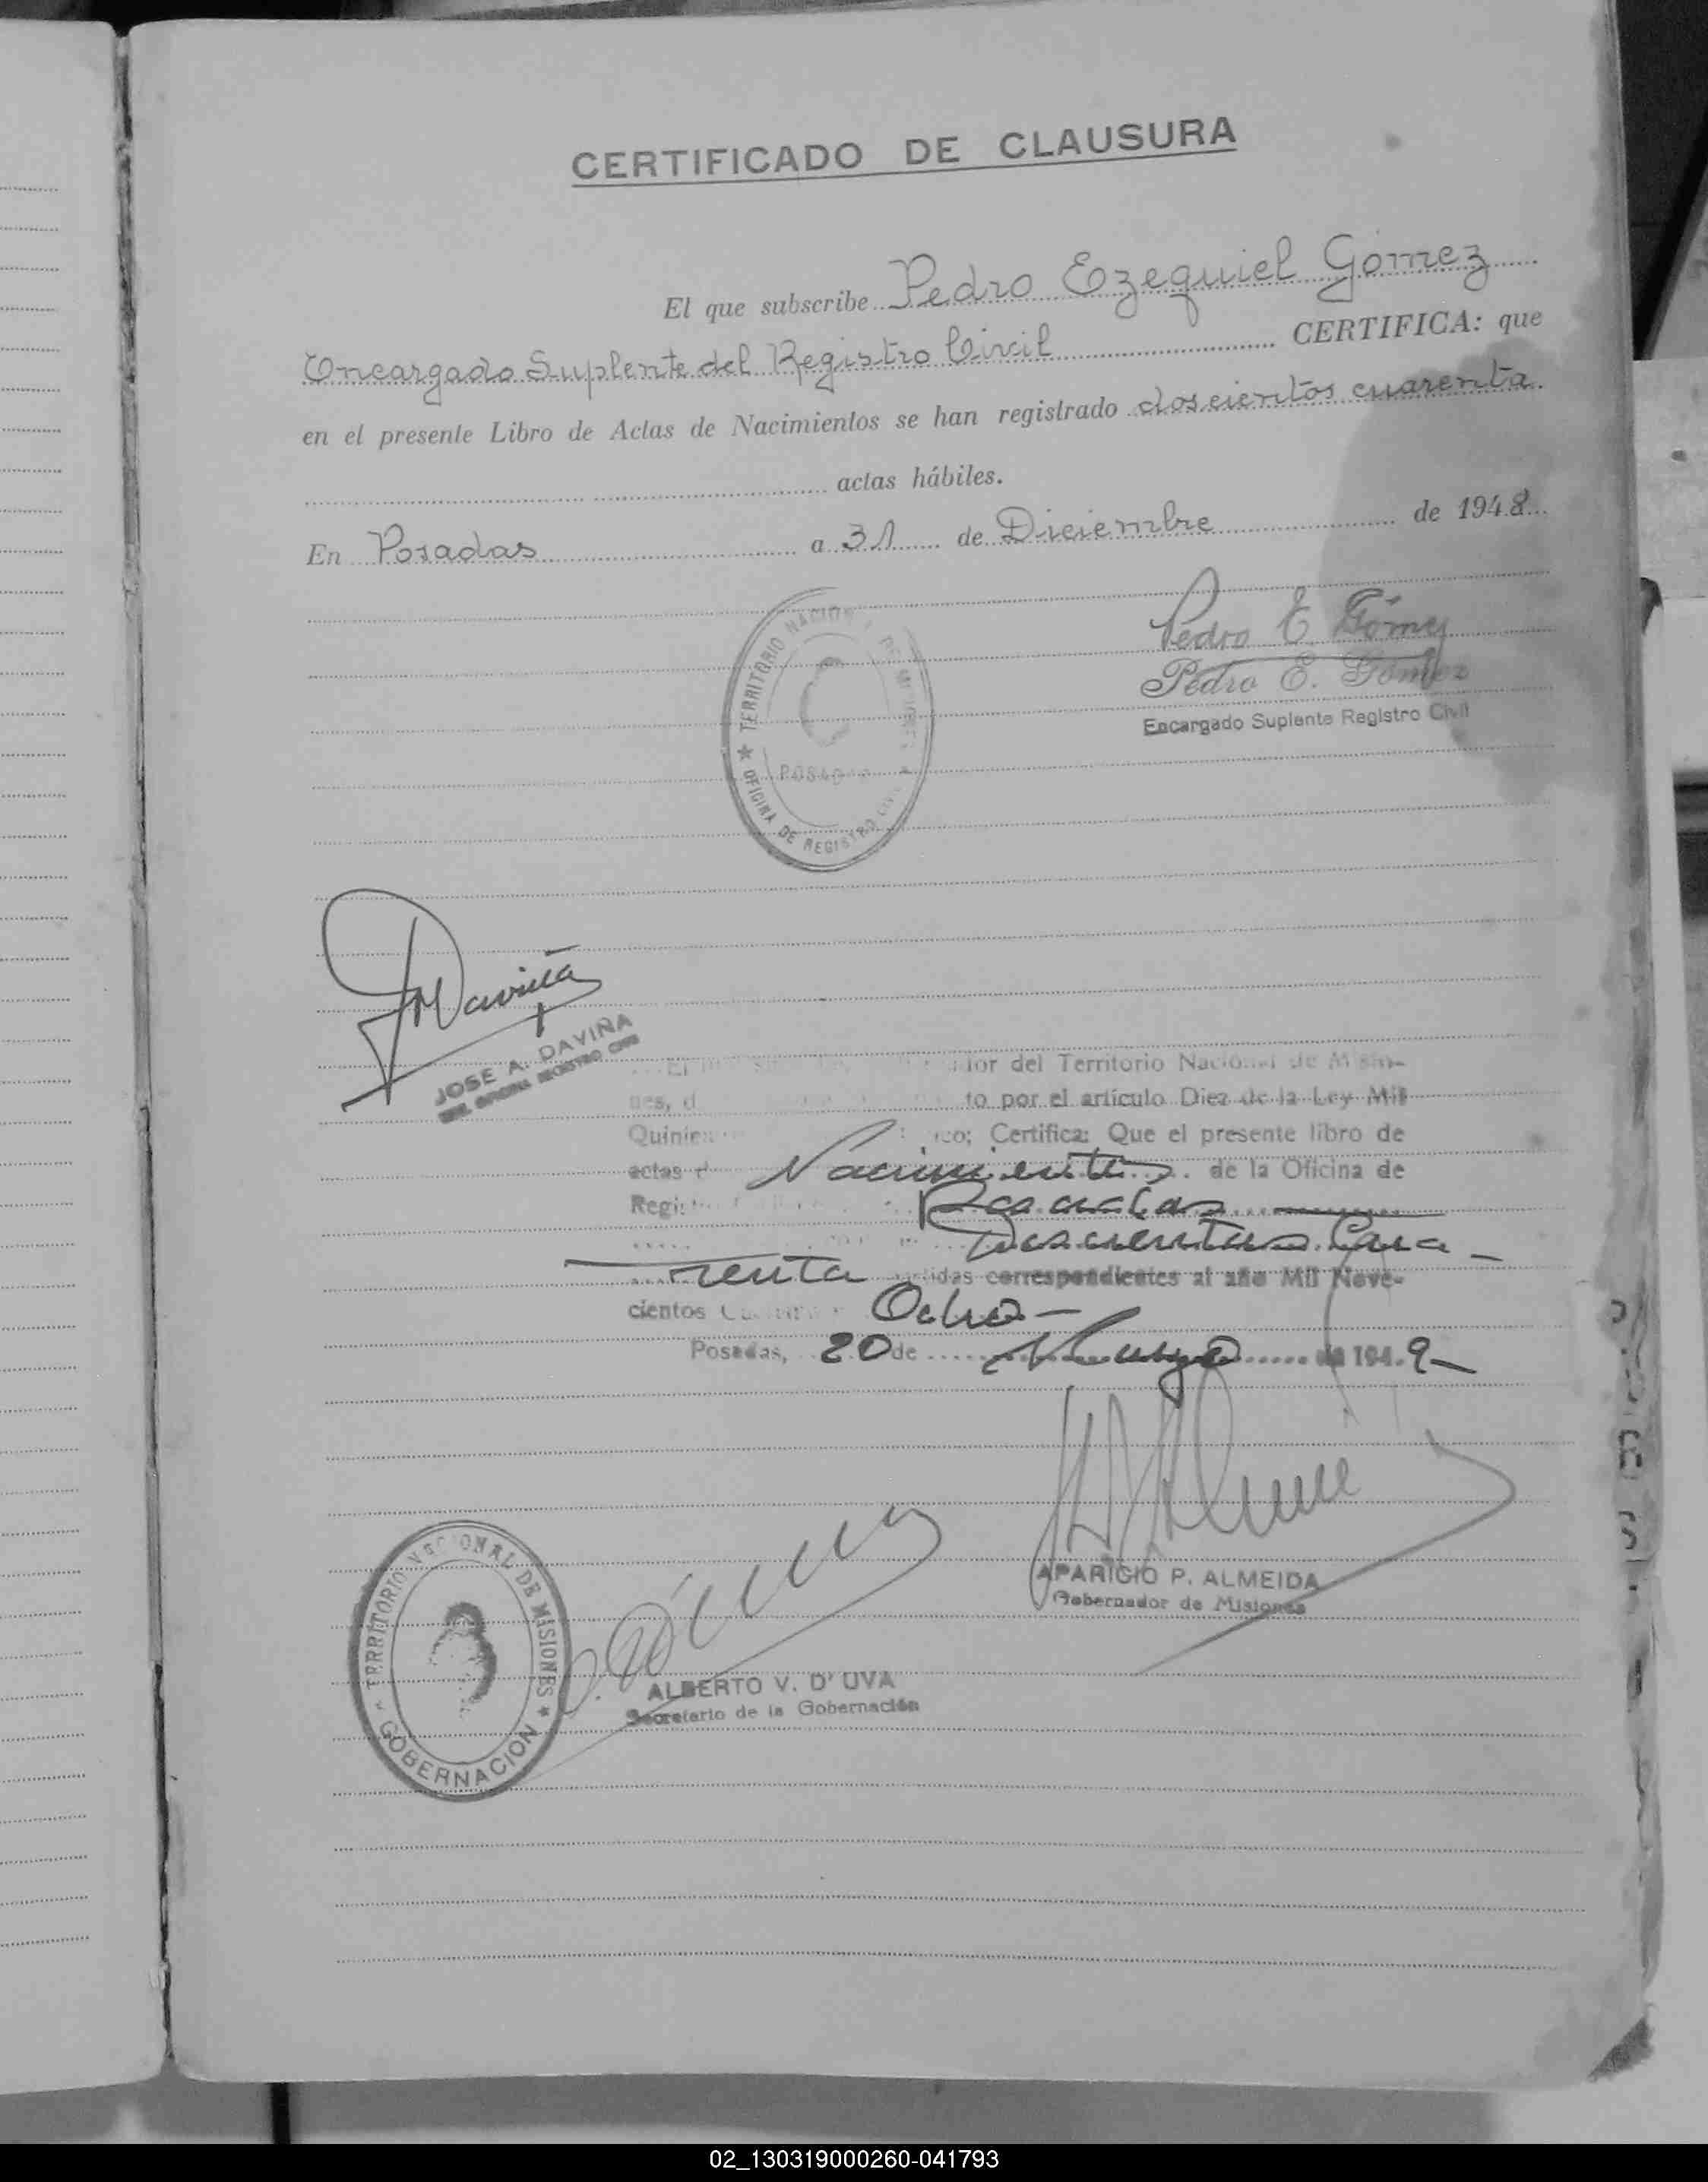 CERTIFICADO DE CLAUSURA
El que subscribe Pedro Ezequiel Gómez
Encargado Suplente del Registro Civil CERTIFICA: que
en el presente Libro de Actas de Nacimientos se han registrado doscientos cuarenta
actas hábiles.
En Posadas a 31 de Diciembre de 1948
TERRITORIO NACION
POSAD
OFICINA DE REGISTRO CIVIL
Pedro E Gómez
Pedro E. Gómez
Encargado Suplente Registro Civil
JDaviña
JOSE A. DAVIÑA
OFICINA REGISTRO CIVIL
El del Territorio Nacional de Misio-
nes, to por el artículo Diez de la Ley Mil
Certifica: Que el presente libro de
actas Nacimientos de la Oficina de
Posadas
Doscientos Cua-
renta correspondientes al año Mil Nove-
cientos Ocho-
Posadas, 20 de Mayo de 1949-
TERRITORIO NACIONAL DE MISIONES
GOBERNACION
APARICIO P. ALMEIDA
Gobernador de Misiones
ALBERTO V. D'UVA
Secretario de la Gobernación
02_130319000260-041793